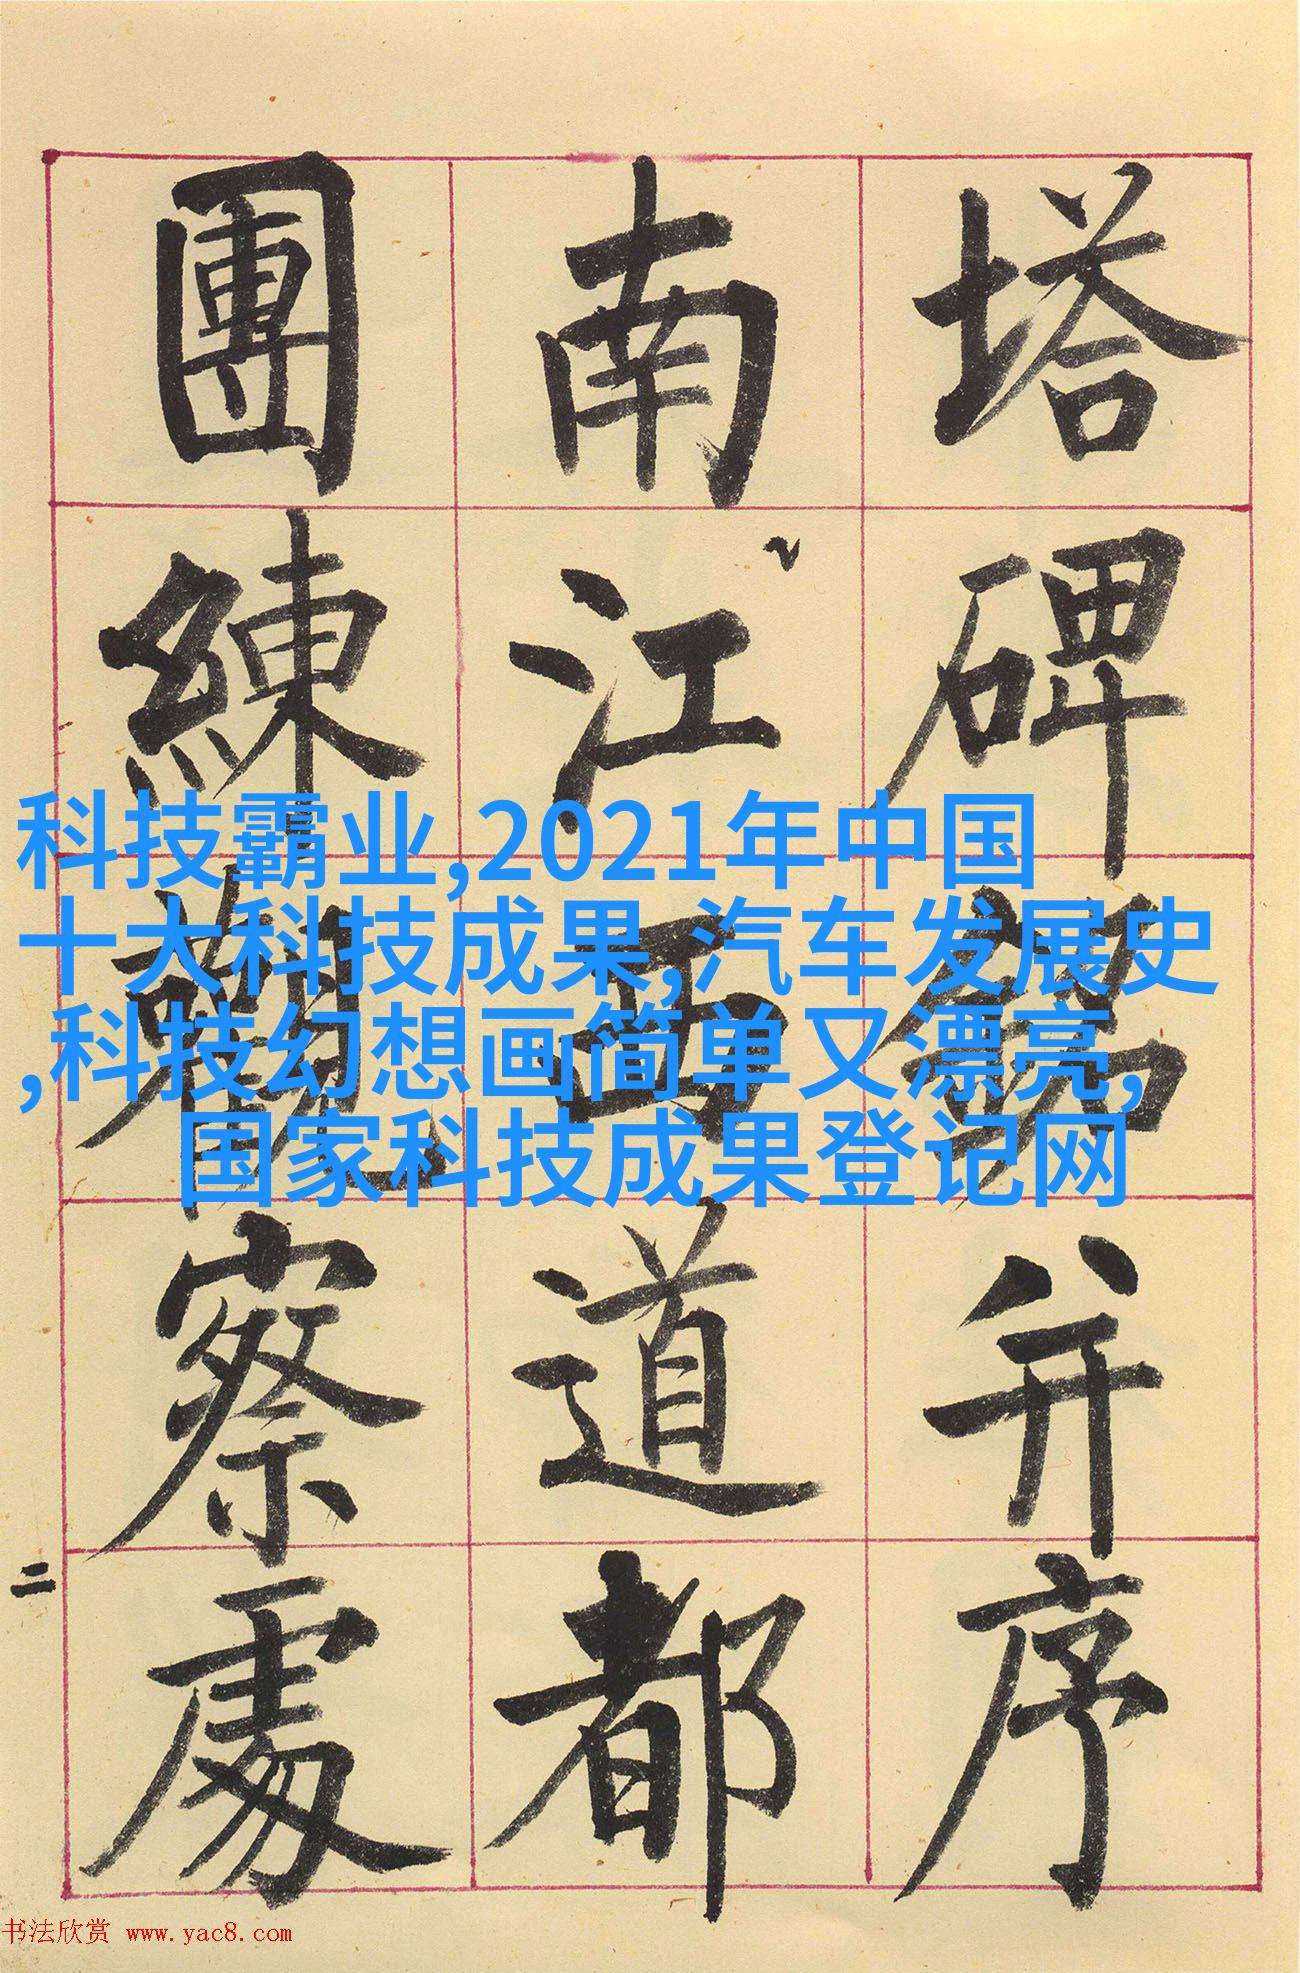 塔碑銘并序
南江西道都
團練觀察處
二
科技霸业,2021年中国
十大科技成果,汽车发展史
,科技幻想画简单又漂亮,
国家科技成果登记网
书法欣赏 www.yac8.com